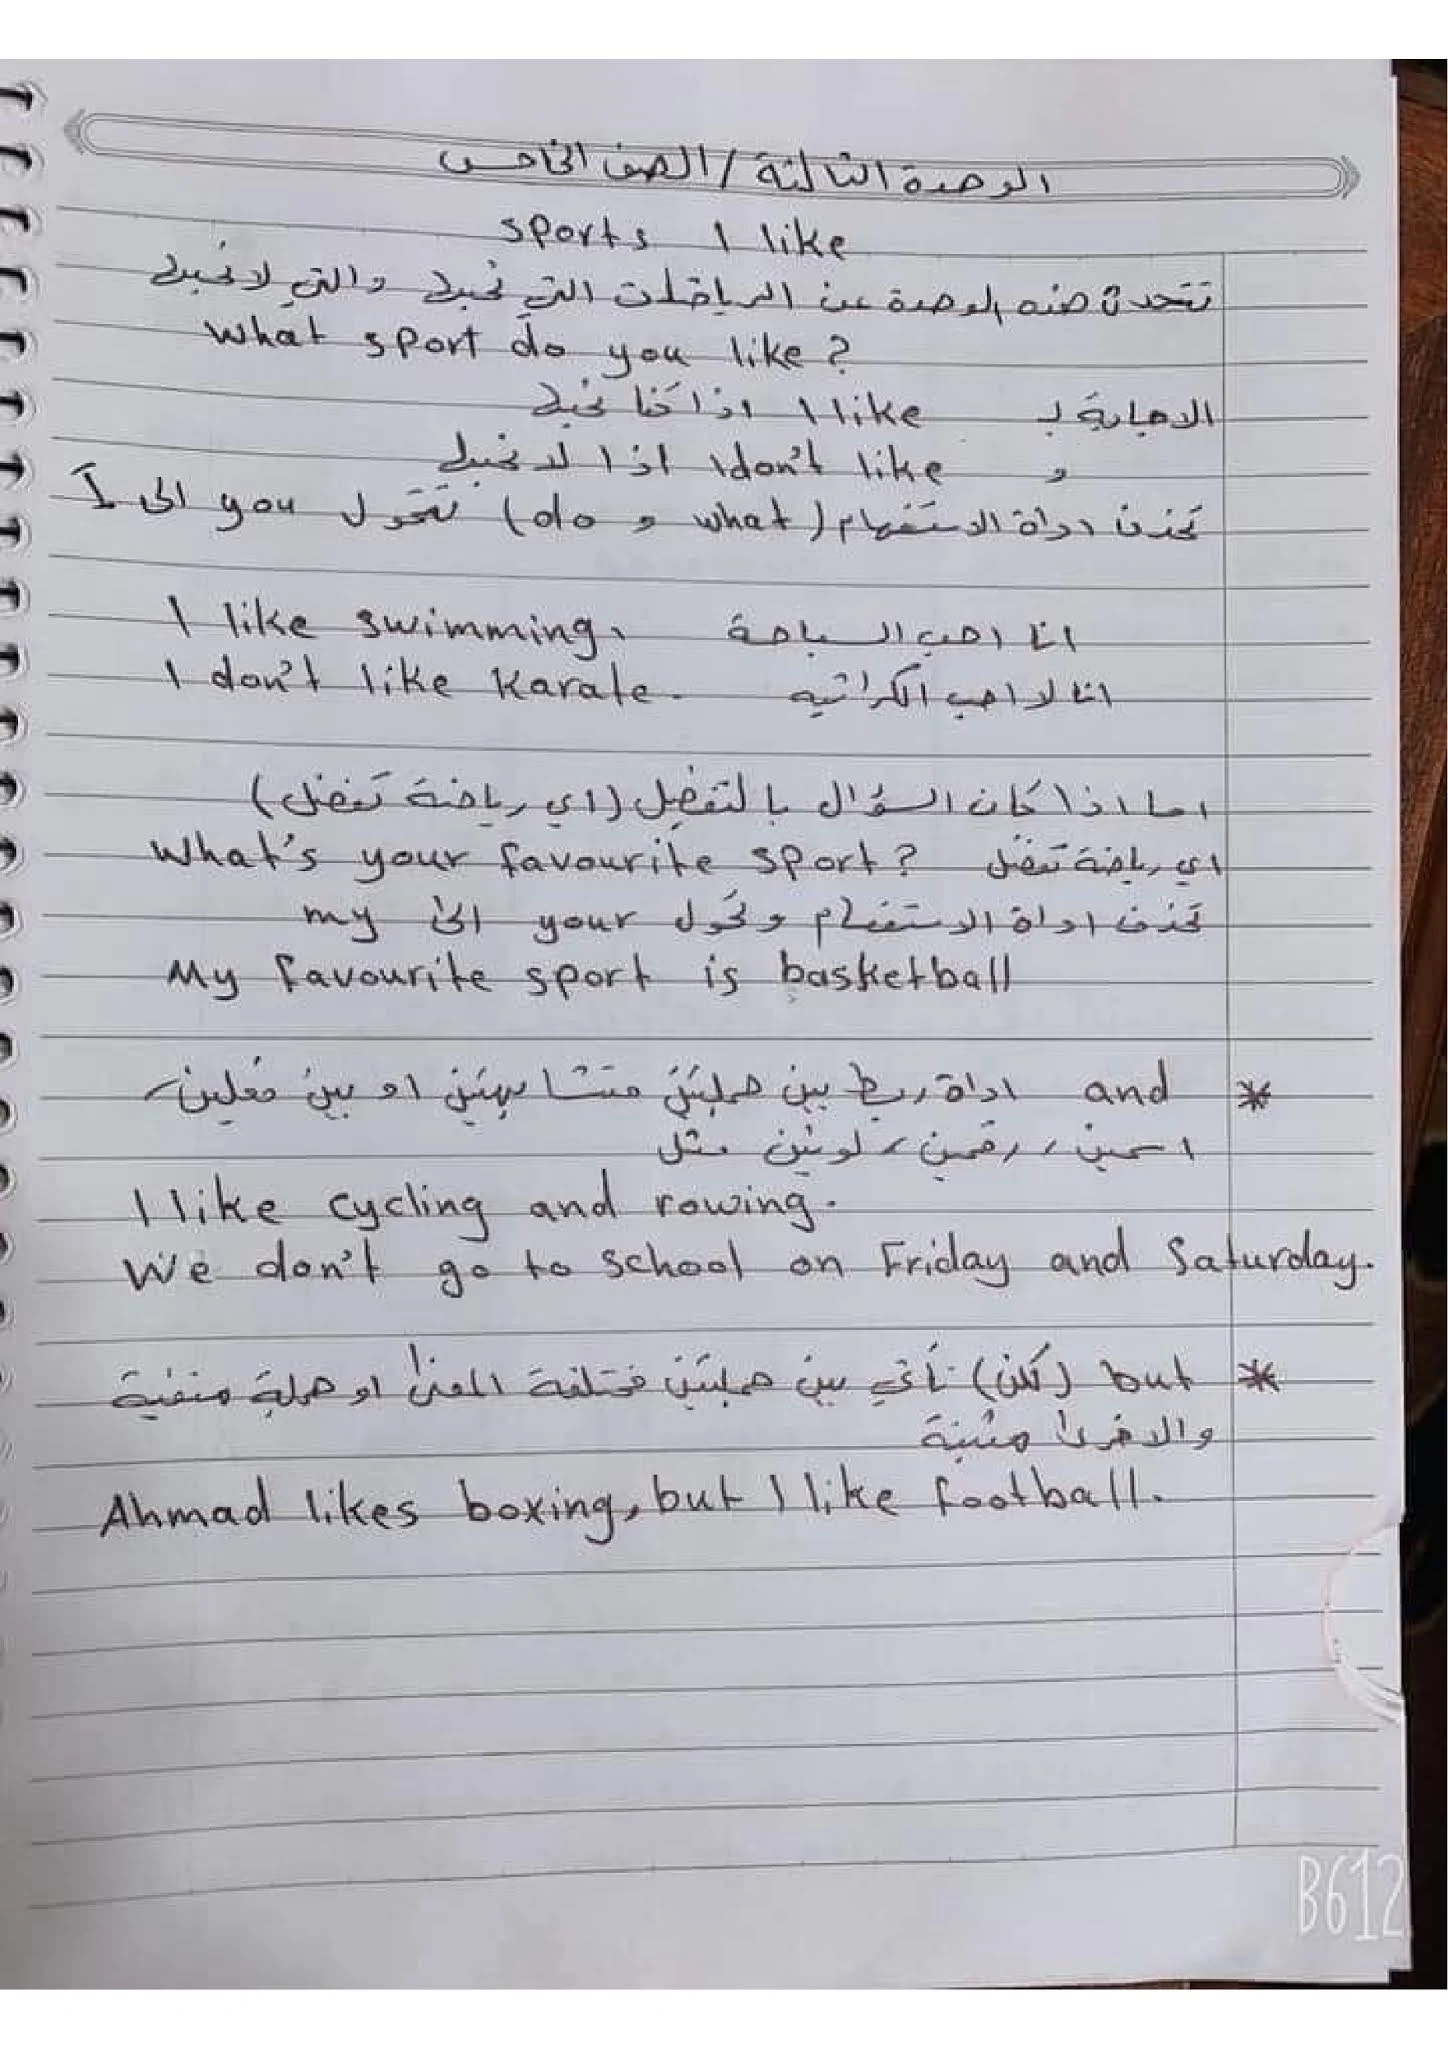 الوحدة الثالثة / الصف الخامس
sports I like
تتحدث هذه الوحدة عن الرياضات التي نحبها والتي لا نحبها
What sport do you like?
الاجابة بـ I like اذا كنا نحبها
و I don't like اذا لا نحبها
نحذف اداة الاستفهام (what و do) نحول you الى I
I like swimming. انا احب السباحة
I don't like Karate. انا لا احب الكراتيه
اما اذا كان السؤال بالتفضيل (اي رياضة تفضل)
What's your favourite sport? اي رياضة تفضل
نحذف اداة الاستفهام ونحول your الى my
My favourite sport is basketball
* and اداة ربط بين جملتين متشابهتين او بين فعلين،
اسمين، رقمين، لونين مثل
I like cycling and rowing.
We don't go to school on Friday and Saturday.
* but (لكن) تأتي بين جملتين مختلفة المعنى او جملة منفية
والاخرى مثبتة
Ahmad likes boxing, but I like football.
B612